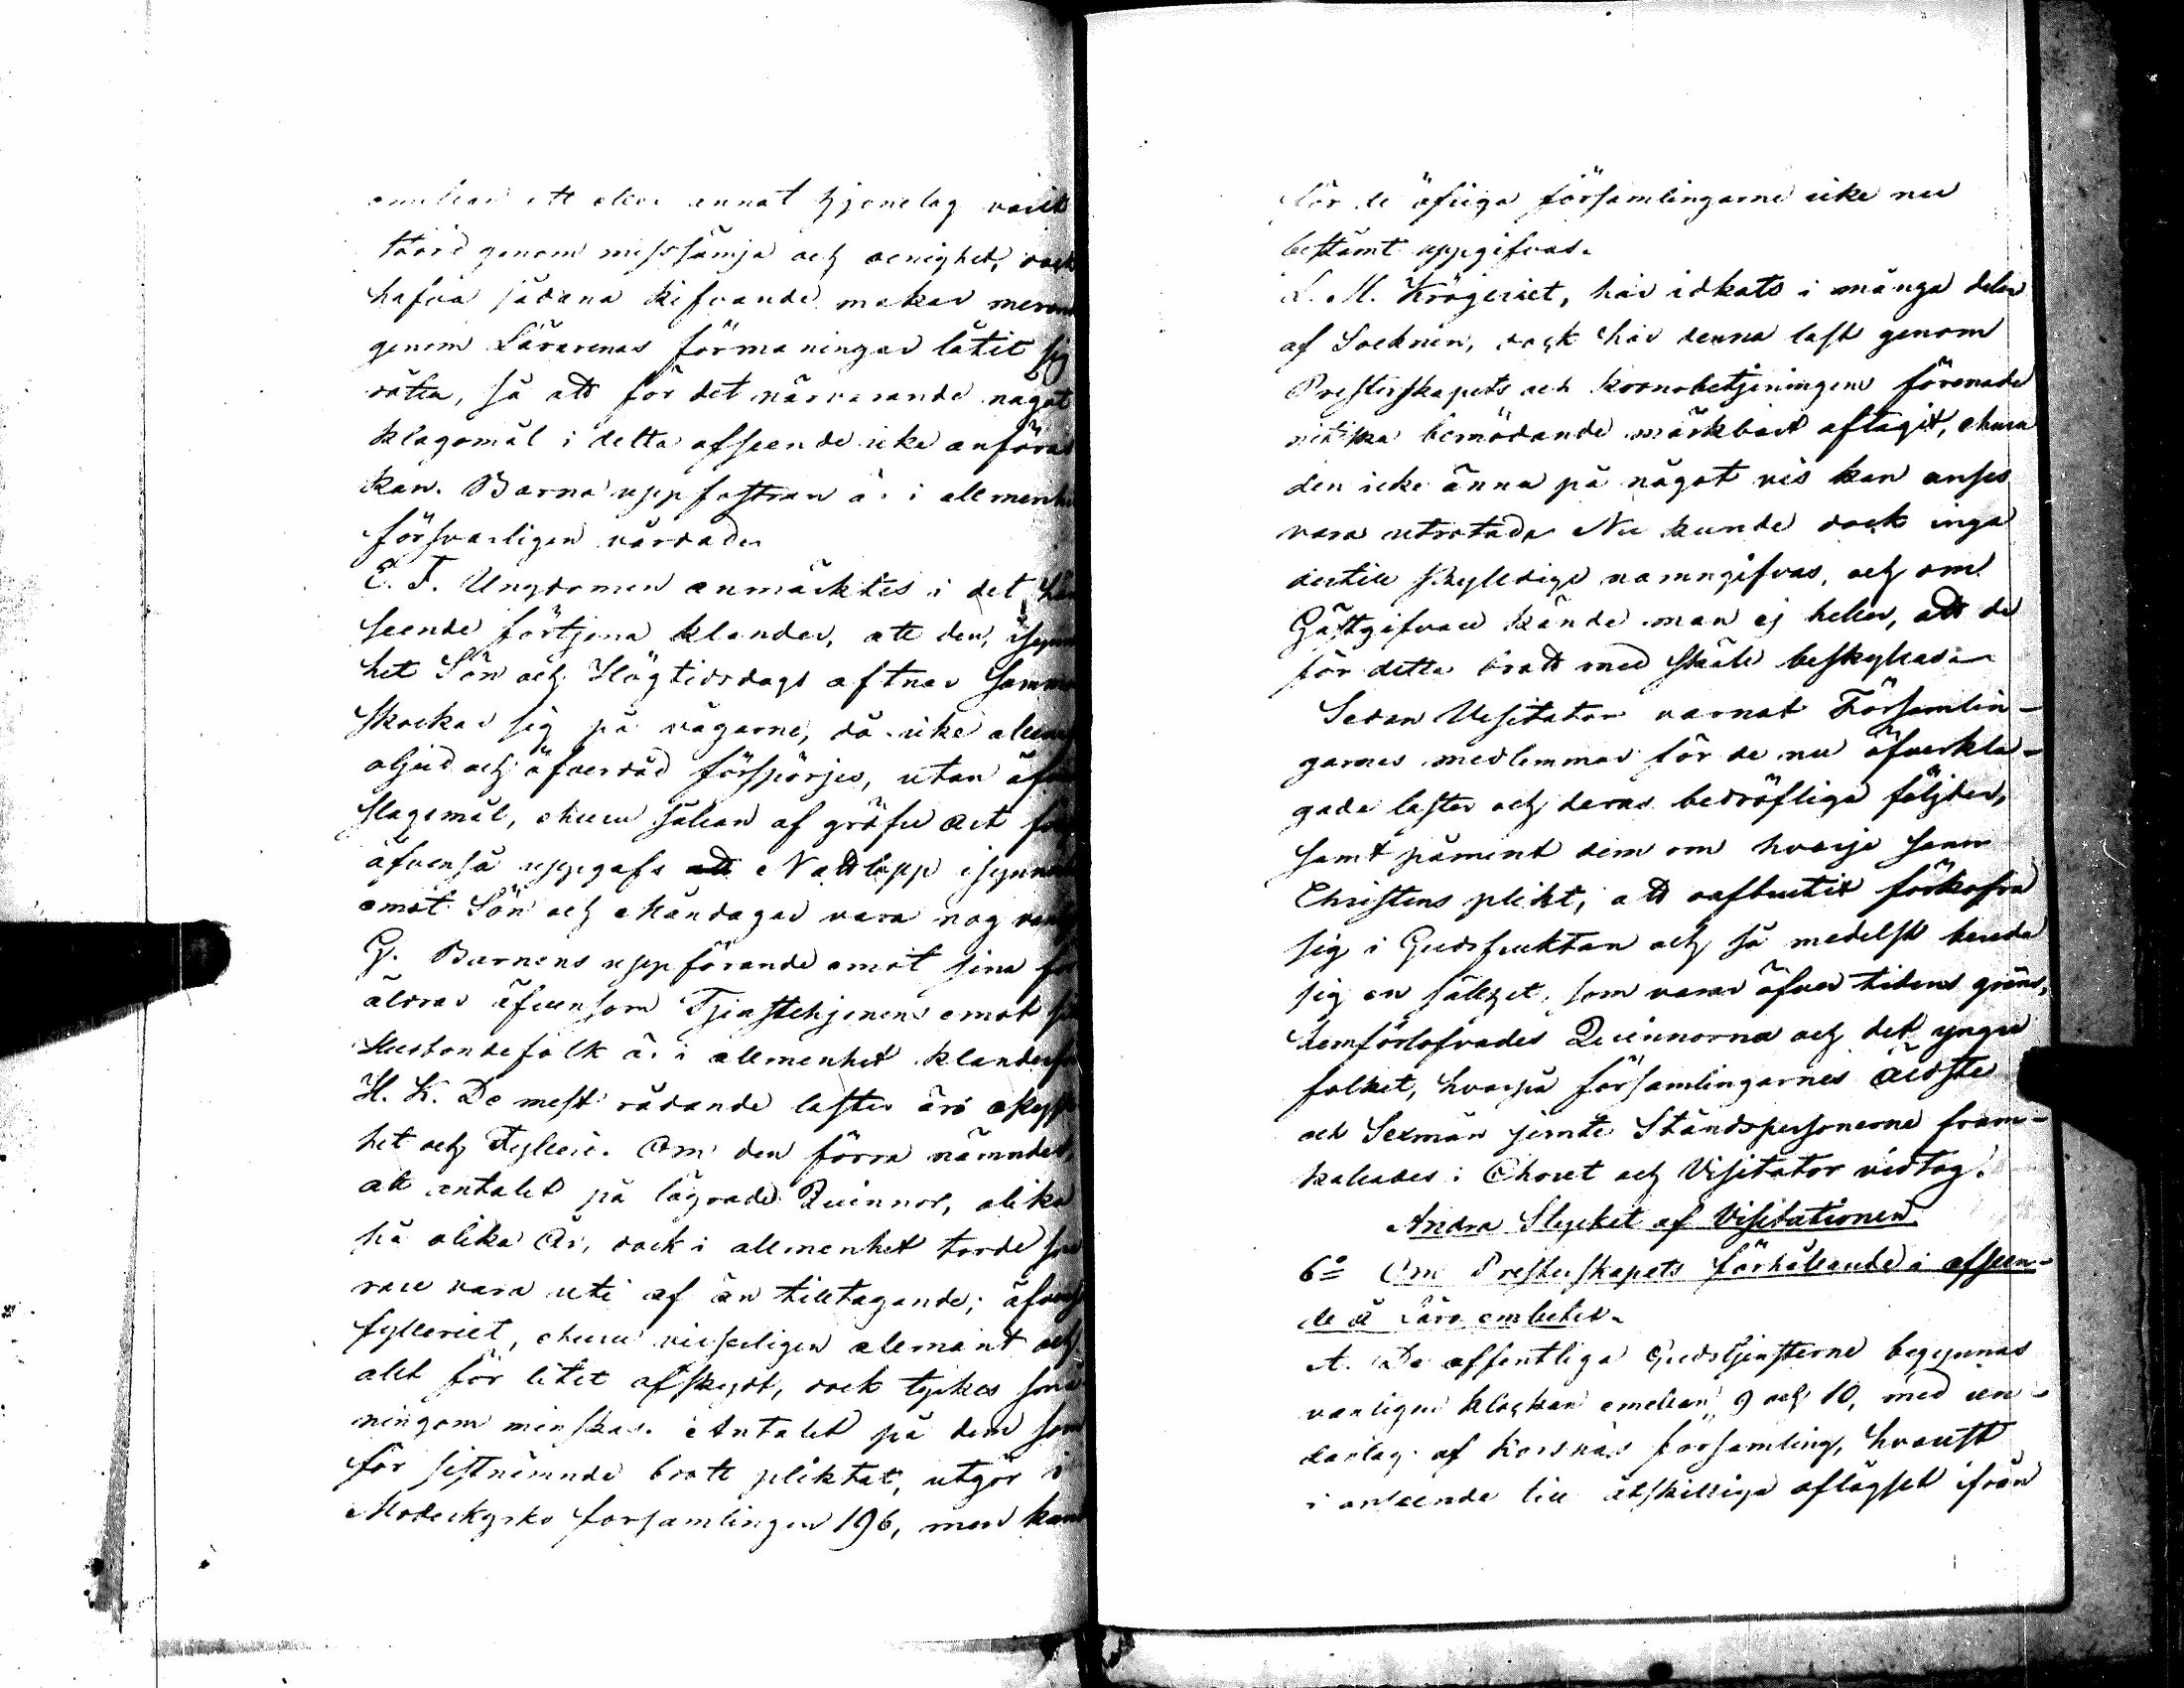 emellan ett eller annat hjonelag varit
störd genom misssämja och oenighet, dock
hafva sådana kifvande makar meren
genom Lärarenas förmaningar låtit sig
rätta, så att för det närvarande något
klagomål i detta afseende icke anföras
kan. Barna uppfostran är i allmenhe
försvarligen vårdad.
E. F. Ungdomen anmärktes i det hän
seende förtjena klander, att den, isynner
het Sön och Högtidsdags aftnar samman
skockar sig på vägarne, då icke allena
oljud och öfverdåd försporjes, utan äfven
slagsmål, ehuru sällan af gröfre art
äfvenså uppgafs att Nattlopp isynnerhet
emot Sön och Måndagar vara nog vanl
G. Barnens uppförande emot sina för
äldrar äfvensom Tjenstehjonens emot
Husbondefolk är i allmenhet klanderf
H. K. De mest rådande laster äro okysk
het och Fylleri. Om den förra nämndes,
att antalet på lägrade Quinnor, olika
på olika År, dock i allmenhet torde
vara uti af än tilltagande; äfvenså
fylleriet, ehuru visserligen allmänt och
allt för litet afskydt, dock tyckes
ningom minskas. Antalet på dem som
för sistnämnde brott pliktat, utgör i
Moderkyrko församlingen 196, men kan
för de öfriga församlingarne icke nu
bestämt uppgifvas.
L. M. Krögeriet, har idkats i många delar
af Socknen, dock har denna last genom
Presterskapets och kronobetjeningens förenade
nitiska bemödande märkbart aftagit, ehuru
den icke ännu på något vis kan anses
vara utrotad. Nu kunde dock inga
dertill skyldige namngifvas, och om
Gästgifvare kände man ej heller, att de
för detta brott med skäl beskyllas.
Sedan Visitator varnat Församlin-
garnes medlemmar för de nu öfverkla-
gade laster och deras bedröfliga följder,
samt påmint dem om hvarje sann
Christens plikt, att oafbrutit förkofra
sig i Gudsfruktan och så medelst bereda
sig en sällhet, som varar öfver tidens gräns,
hemförlofvades Quinnorna och det yngre
folket, hvarpå församlingarnes äldste
och Sexmän jemte Ståndspersonerne fram-
kallades i Choret och Visitator vidtog.
Andra Stycket af Visitationen
6o Om Presterskapets förhållande i afseen-
de å Läro embetet.
A. De offentliga Gudstjensterne begynnas
vanligen klockan emellan 9 och 10, med un-
dantag af Korsnäs församling, hvarest
i anseende till åtskilliga aflägset ifrån